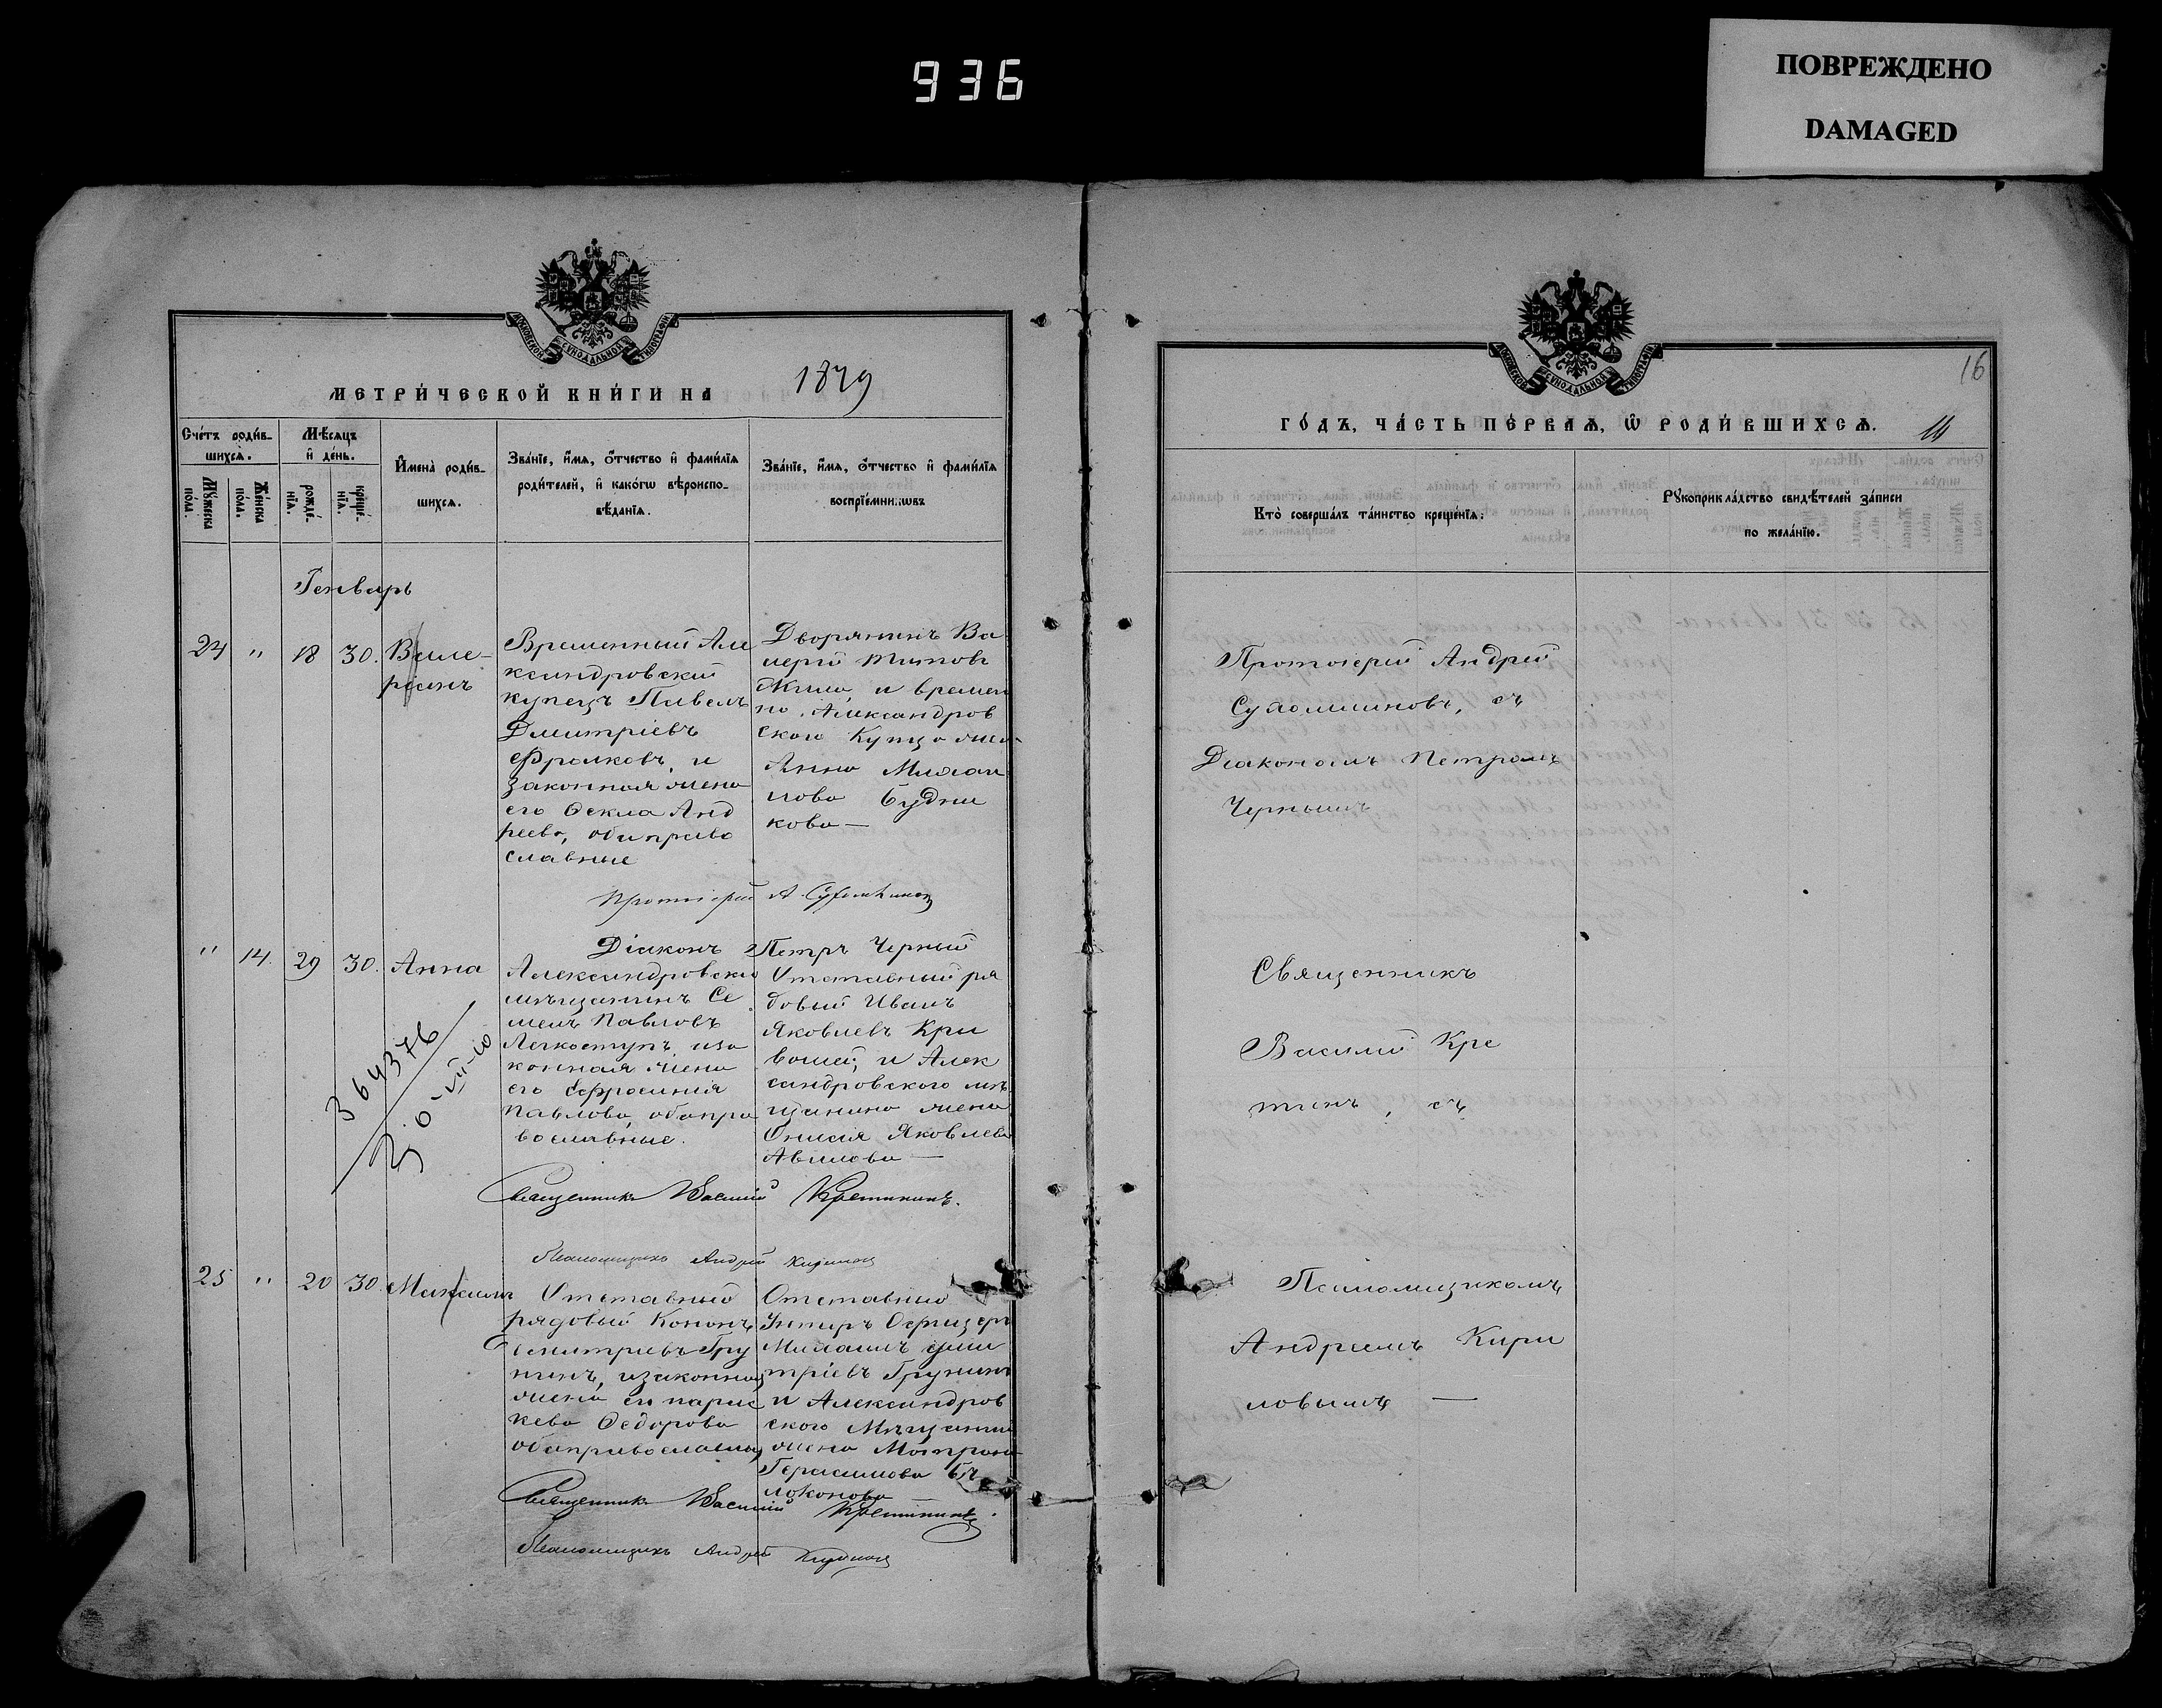 936
ПОВРЕЖДЕНО
DAMAGED
МОСКОВСКОЙ СѴНОДАЛЬНОЙ ТИПОГРАФІИ
МЕТРИ́ЧЕСКОЙ КНИ́ГИ НА 1879
Сче́тъ роди́в-
шихсѧ.
Мꙋ́жеска по́ла.
Же́нска по́ла.
Мѣ́сѧцъ
и҆ де́нь.
рожде́-
нїѧ.
креще́-
нїѧ.
И҆мена̀ роди́в-
шихсѧ.
Зва́нїе, и҆́мѧ, ѻ҆́тчество и҆ фами́лїѧ
роди́телей, и҆ како́гѡ вѣ́роиспо-
вѣ́данїѧ.
Зва́нїе, и҆́мѧ, ѻ҆́тчество и҆ фами́лїѧ
воспрїе́мникѡвъ
Генварь
24 " 18 30. Вале-
ріанъ
Временный Але
ксандровскій
купецъ Павелъ
Дмитріевъ
Фролковъ, и
законная жена
его Ѳекла Анд
реева, оба право
славные
Дворянинъ Ва
лерій Титовъ
и времен
но Александров
скаго Купца жена
Анна Михаи
лова Будни
кова —
Протоіерей А. Сухомлиновъ
Діаконъ Петръ Черный
" 14. 29 30. Анна
Александровскій
мѣщанинъ Се
менъ Павловъ
Легкоступъ, и за
конная жена
его Ефросинія
Павлова, оба пра
вославные.
Отставный ря
довый Иванъ
Яковлевъ Кри
вошей, и Алек
сандровскаго мѣ
щанина жена
Онисія Яковлева
Авилова —
364376
Священникъ Василій Кретининъ.
Псаломщикъ Андрей Кириловъ
25 " 20 30. Михаилъ
Отставный
рядовый Кононъ
Димитріевъ Гру
нинъ, и законная
жена его Парас
кева Ѳедорова
оба православные
Отставный
Унтеръ Офицеръ
Михаилъ Дими
тріевъ Грунинъ
и Александров
скаго Мѣщанина
жена Матрона
Герасимова Бѣ
локонова
Священникъ Василій Кретининъ.
Псаломщикъ Андрей Кириловъ
МОСКОВСКОЙ СѴНОДАЛЬНОЙ ТИПОГРАФІИ
16
ГО́ДЪ, ЧА́СТЬ ПЕ́РВАѦ, Ѡ҆ РОДИ́ВШИХСѦ.
Кто̀ соверша́лъ та́инство креще́нїѧ:
Рꙋкоприкла́дство свидѣ́телей за́писи
по жела́нїю.
Протоіерей Андрей
Сухомлиновъ, съ
Діакономъ Петромъ
Чернымъ
Священникъ
Василий Кре
тинъ, съ
Псаломщикомъ
Андреемъ Кири
ловымъ —